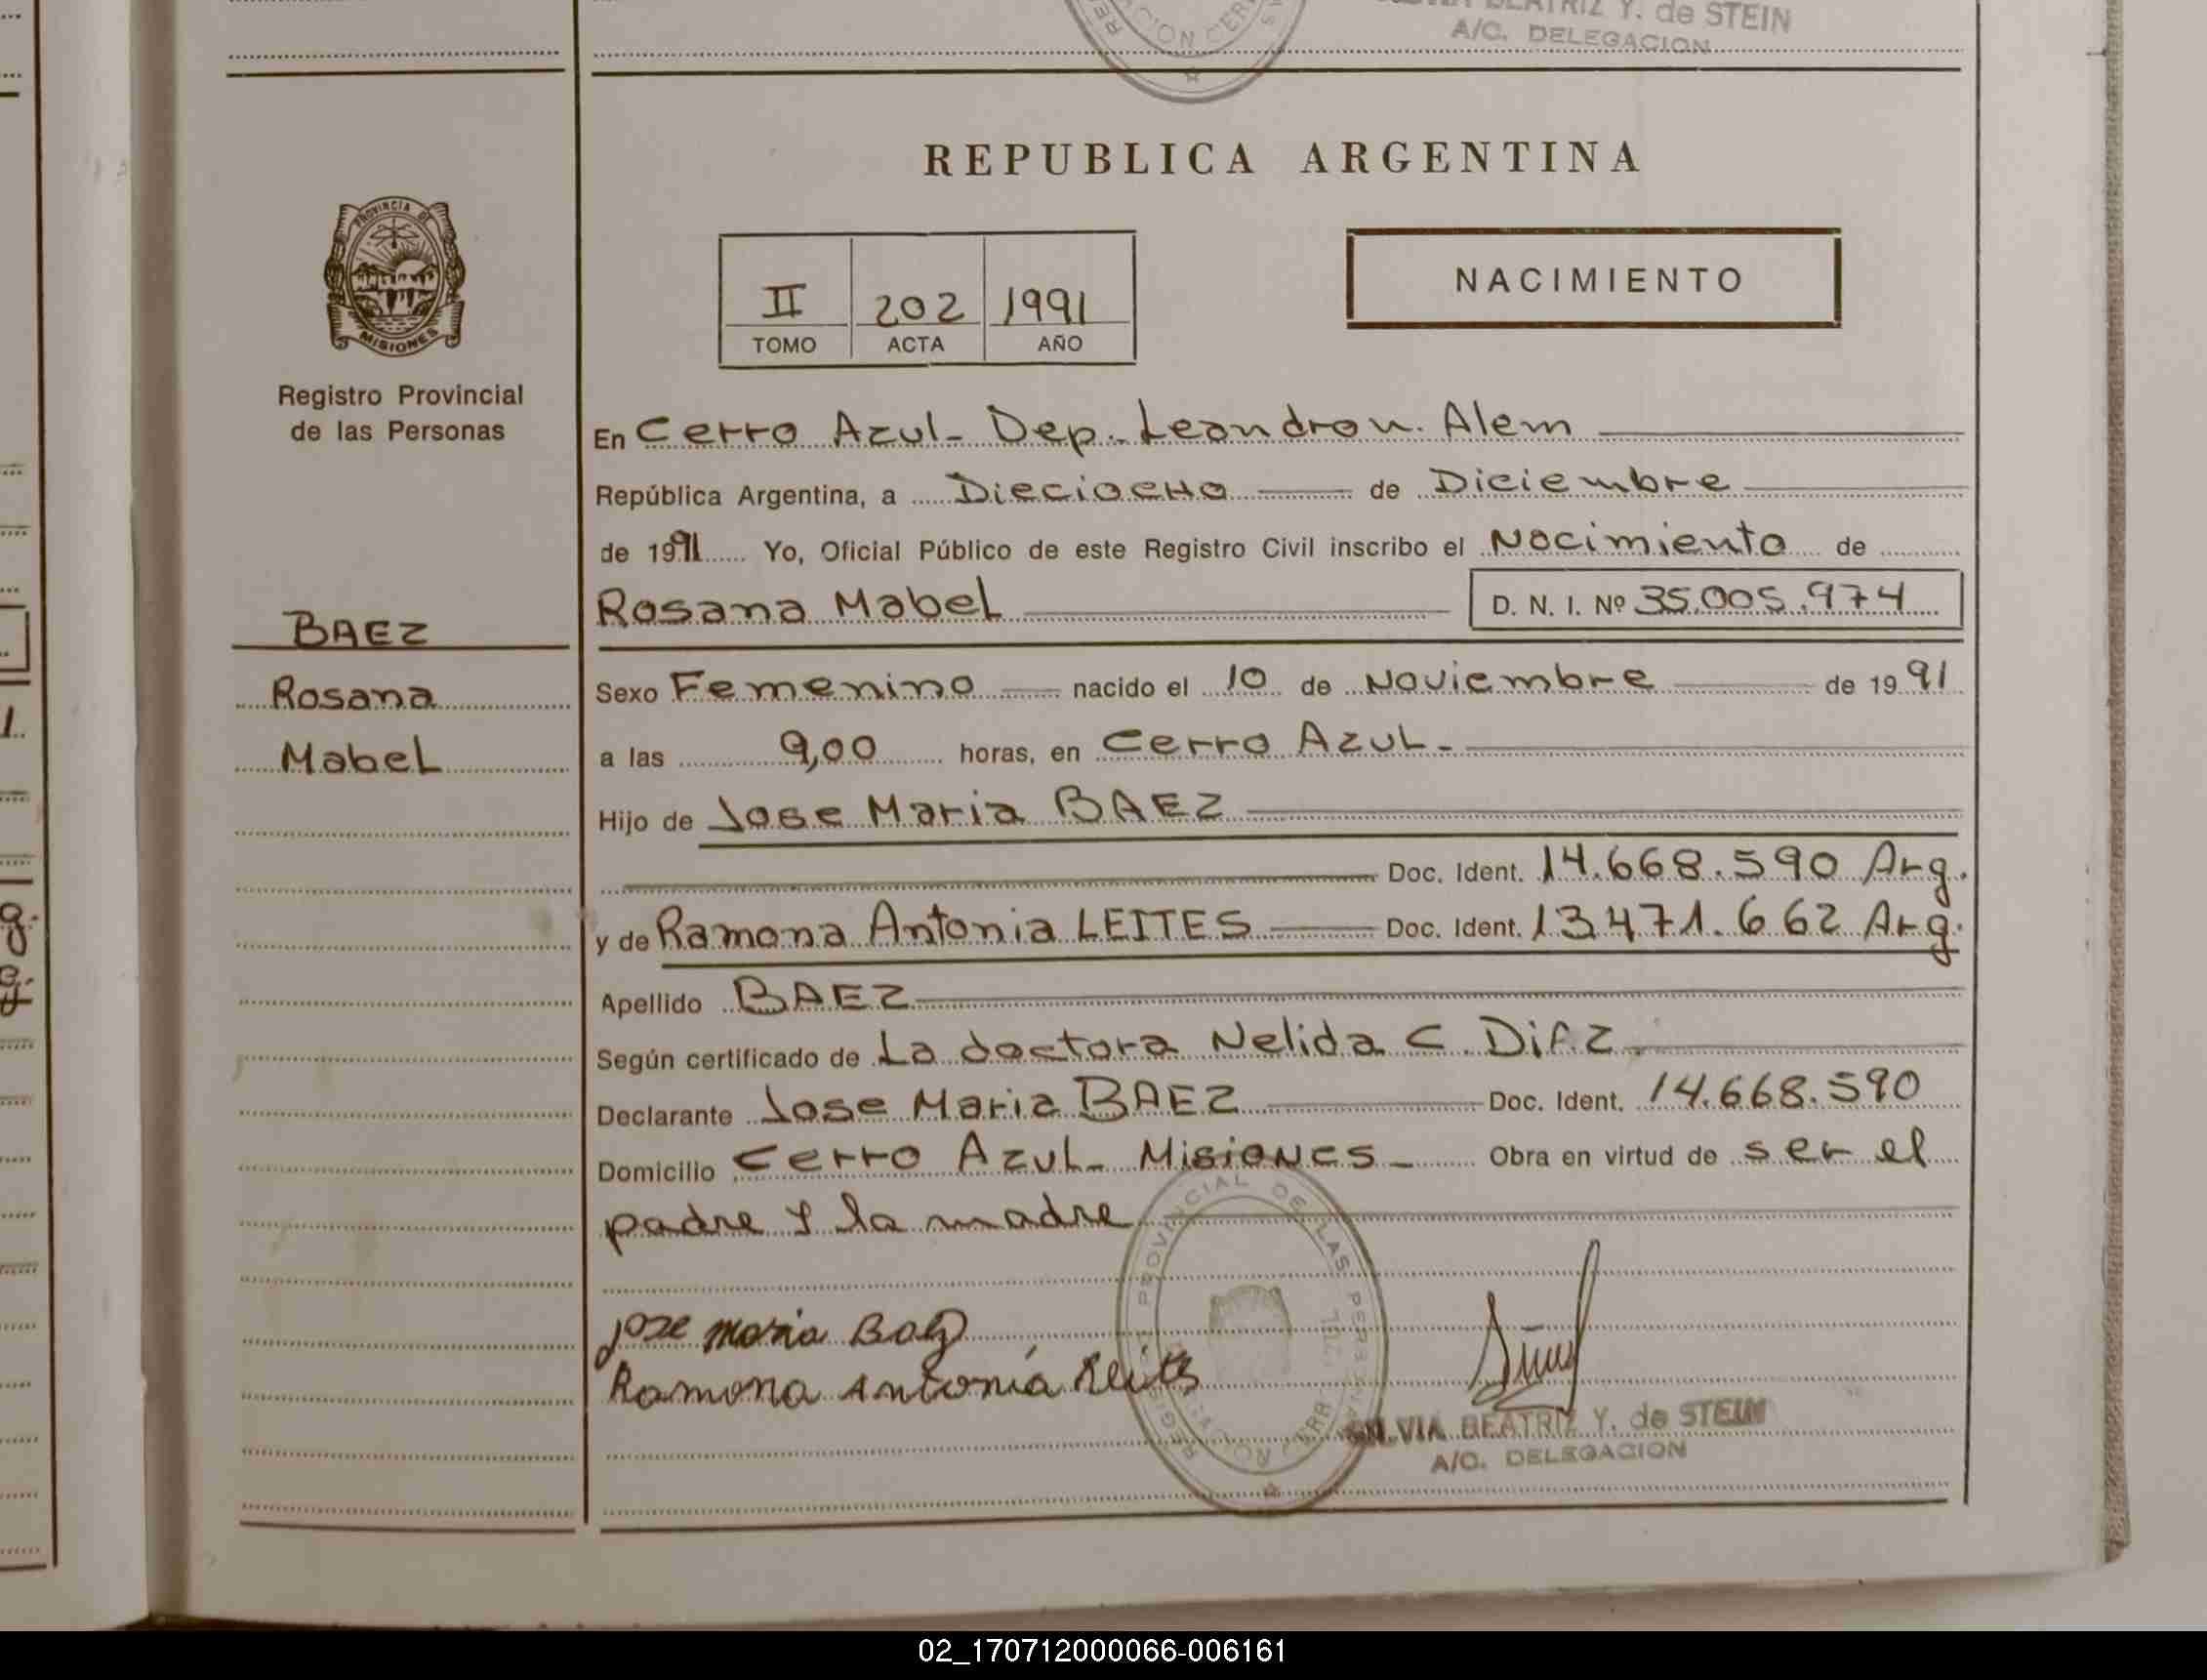 BEATRIZ Y. de STEIN
A/C. DELEGACION
REPUBLICA ARGENTINA
PROVINCIA DE
MISIONES
Registro Provincial
de las Personas
NACIMIENTO
II 202 1991
TOMO ACTA AÑO
En Cerro Azul - Dep. Leandro N. Alem
República Argentina, a Dieciocho de Diciembre
de 1991 Yo, Oficial Público de este Registro Civil inscribo el Nacimiento de
Rosana Mabel D. N. I. Nº 35.005.974
BAEZ
Rosana
Mabel
Sexo Femenino nacido el 10 de Noviembre de 1991
a las 9,00 horas, en Cerro Azul -
Hijo de Jose Maria BAEZ
Doc. Ident. 14.668.590 Arg.
y de Ramona Antonia LEITES Doc. Ident. 13.471.662 Arg.
Apellido BAEZ
Según certificado de La doctora Nelida C.
Declarante Jose Maria BAEZ Doc. Ident. 14.668.590
Domicilio Cerro Azul - Misiones - Obra en virtud de ser el
padre y la madre
Jose Maria Baez
Ramona Antonia Leites
SILVIA BEATRIZ Y. de STEIN
A/C. DELEGACION
02_170712000066-006161